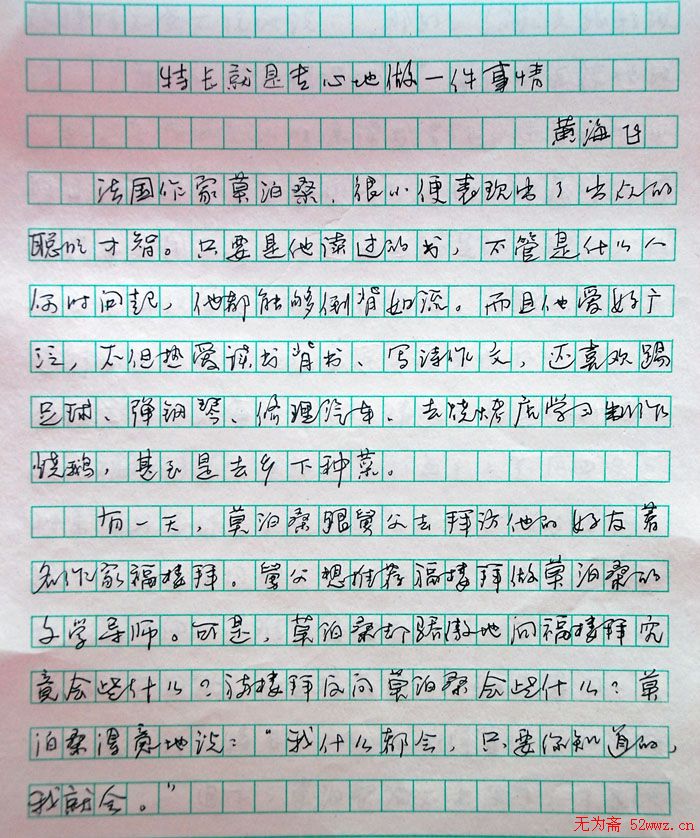 特长就是专心地做一件事情
黄海飞
法国作家莫泊桑，很小便表现出了出众的
聪明才智。只要是他读过的书，不管是什么人
何时问起，他都能够倒背如流。而且他爱好广
泛，不但热爱读书背书、写诗作文，还喜欢踢
足球、弹钢琴、修理汽车、去烧烤店学习制作
烧鹅，甚至是去乡下种菜。
有一天，莫泊桑跟舅父去拜访他的好友著
名作家福楼拜。舅父想推荐福楼拜做莫泊桑的
文学导师。可是，莫泊桑却骄傲地问福楼拜究
竟会些什么？福楼拜反问莫泊桑会些什么？莫
泊桑得意地说：“我什么都会，只要你知道的，
我就会。”
无为斋 52wwz.cn